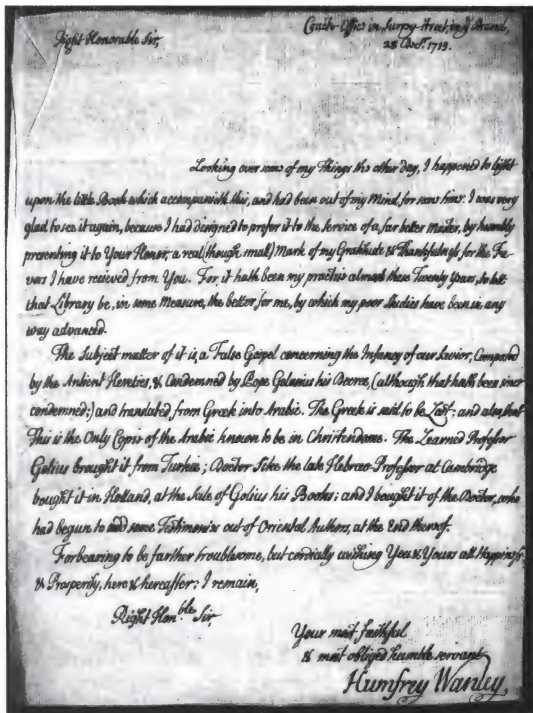 Right Honorable Sir,
Office in Surry-street, in ye Strand,
28 1713.
Looking over some of my Things the other day, I happened to light
upon the little Book which accompanieth this, and had been out of my Mind, for some time. I was very
glad to see it again, because I had designed to prefer it to the service of a far better Master, by humbly
presenting it to Your Honor; a real (though small) Mark of my Gratitude & Thankfulness for the Fa-
vors I have received from You. For, it hath been my practise almost these Twenty years, to let
that Library be, in some Measure, the better for me, by which my poor Studies have been in any
way advanced.
The Subject matter of it is, a False Gospel concerning the Infancy of our Savior, Composed
by the Antient Heretics, & Condemned by Pope Gelasius his Decree, (although that hath been since
condemned;) and translated from Greek into Arabic. The Greek is said to be Lost; and also, that
This is the Only Copie of the Arabic known to be in Christendome. The Learned Professor
Golius brought it from Turkie; Doctor Sike the late Hebrew-Professor at Cambridge
bought it in Holland, at the Sale of Golius his Books; and I bought it of the Doctor, who
had begun to add some Testimonies out of Oriental Authors, at the End thereof.
Forbearing to be farther troublesome, but cordially wishing You & Yours all Happiness
& Prosperity, here & hereafter; I remain,
Right Hon.ble Sir,
Your most faithful
& most obliged humble servant
Humfrey Wanley,